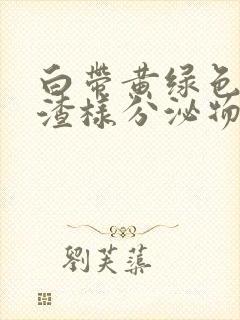 白带黄绿色
渣样分泌物
劉芙蕖